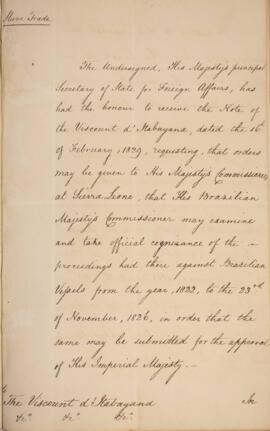 Slave Trade
The Undersigned, His Majesty's principal
Secretary of State for Foreign Affairs, has
had the honour to receive the Note of
the Viscount d'Itabayana, dated the 16th
of February, 1829, requesting, that orders
may be given to His Majesty's Commissioners
at Sierra Leone, that His Brazilian
Majesty's Commissioner may examine
and take official cognisance of the -
proceedings had there against Brazilian
Vessels from the year, 1822, to the 23rd
of November, 1826, in order that the
same may be submitted for the approval
of His Imperial Majesty. -
In
The Viscount d'Itabayana
&c. &c. &c.